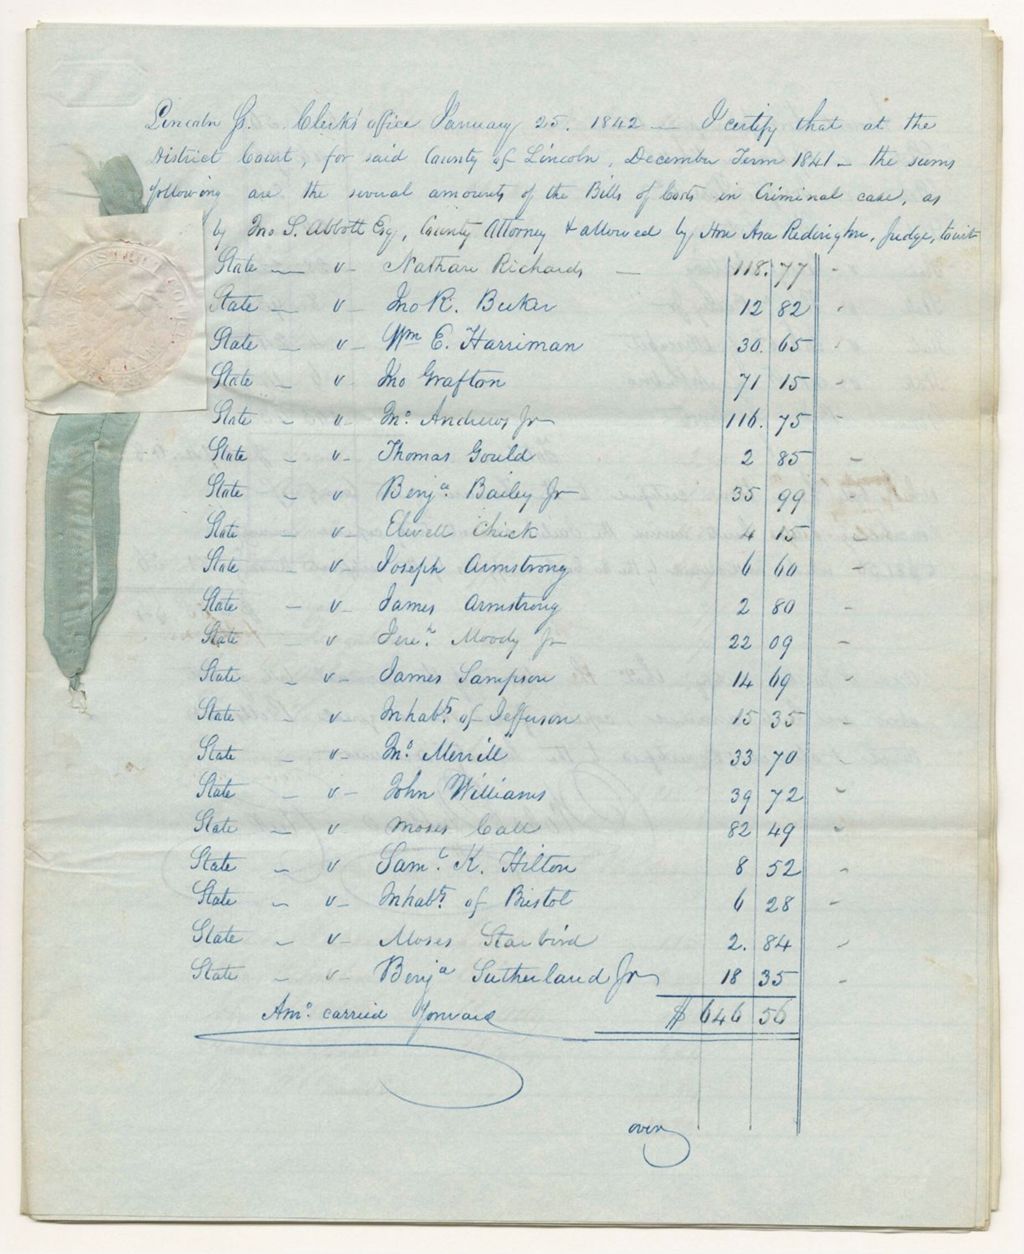 Lincoln Ss. Clerk's office January 25. 1842 — I certify that at the
District Court, for said County of Lincoln, December Term 1841 — the sums
following are the several amounts of the Bills of Costs in Criminal case, as
by Jno S. Abbott Esq, County Attorney & allowed by Hon Asa Redington, Judge, towit
State — v — Nathan Richards — 118. 77
State — v — Jno R. Becker 12 82
State — v — Wm E. Harriman 30. 65
State — v — Jno Grafton 71 15
State — v — Jno Andrews Jr 116. 75
State — v — Thomas Gould 2 85
State — v — Benja Bailey Jr 35 99
State — v — Elwell Chick 4 15
State — v — Joseph Armstrong 6 60
State — v — James Armstrong 2 80
State — v — Jereh Moody Jr 22 09
State — v — James Sampson 14 69
State — v — Inhabts of Jefferson 15 35
State — v — Jno Merrill 33 70
State — v — John Williams 39 72
State — v — Moses Call 82 49
State — v — Saml K. Hilton 8 52
State — v — Inhabts of Bristol 6 28
State — v — Moses Starbird 2. 84
State — v — Benja Sutherland Jr 18 35
Amo carried forward $ 646 56
over